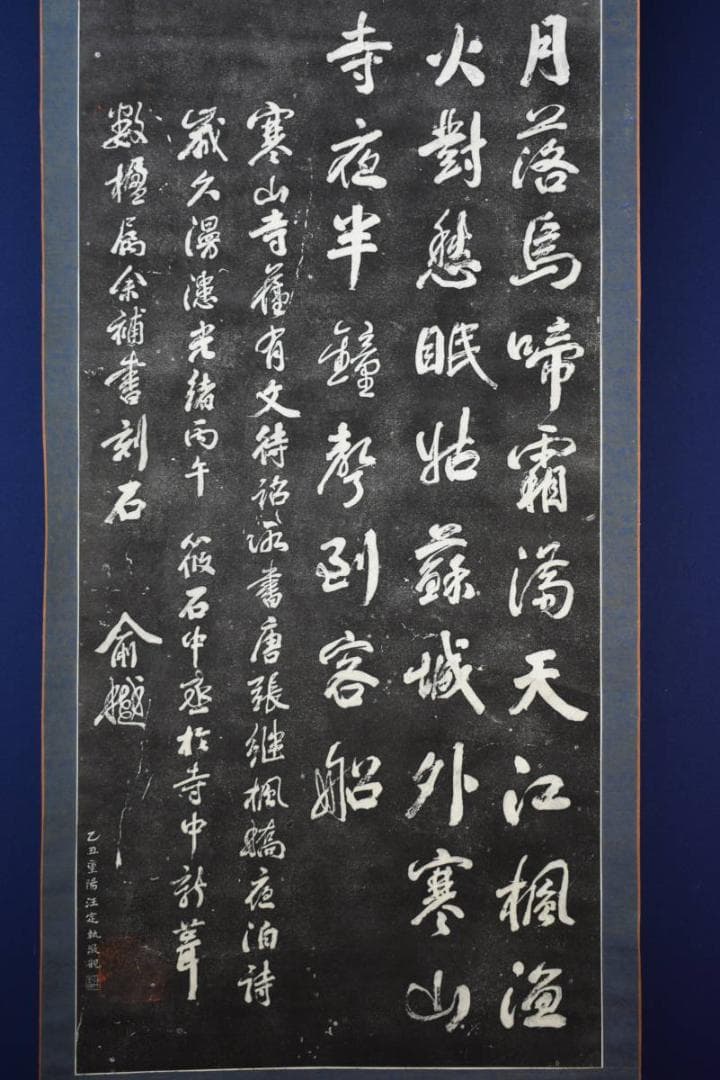 月落烏啼霜滿天江楓漁
火對愁眠姑蘇城外寒山
寺夜半鐘聲到客船
寒山寺舊有文待詔所書唐張繼楓橋夜泊詩
歲久漫漶光緒丙午筱石中丞於寺中新葺
數楹屬余補書刻石 俞樾
乙丑重陽汪定執觀